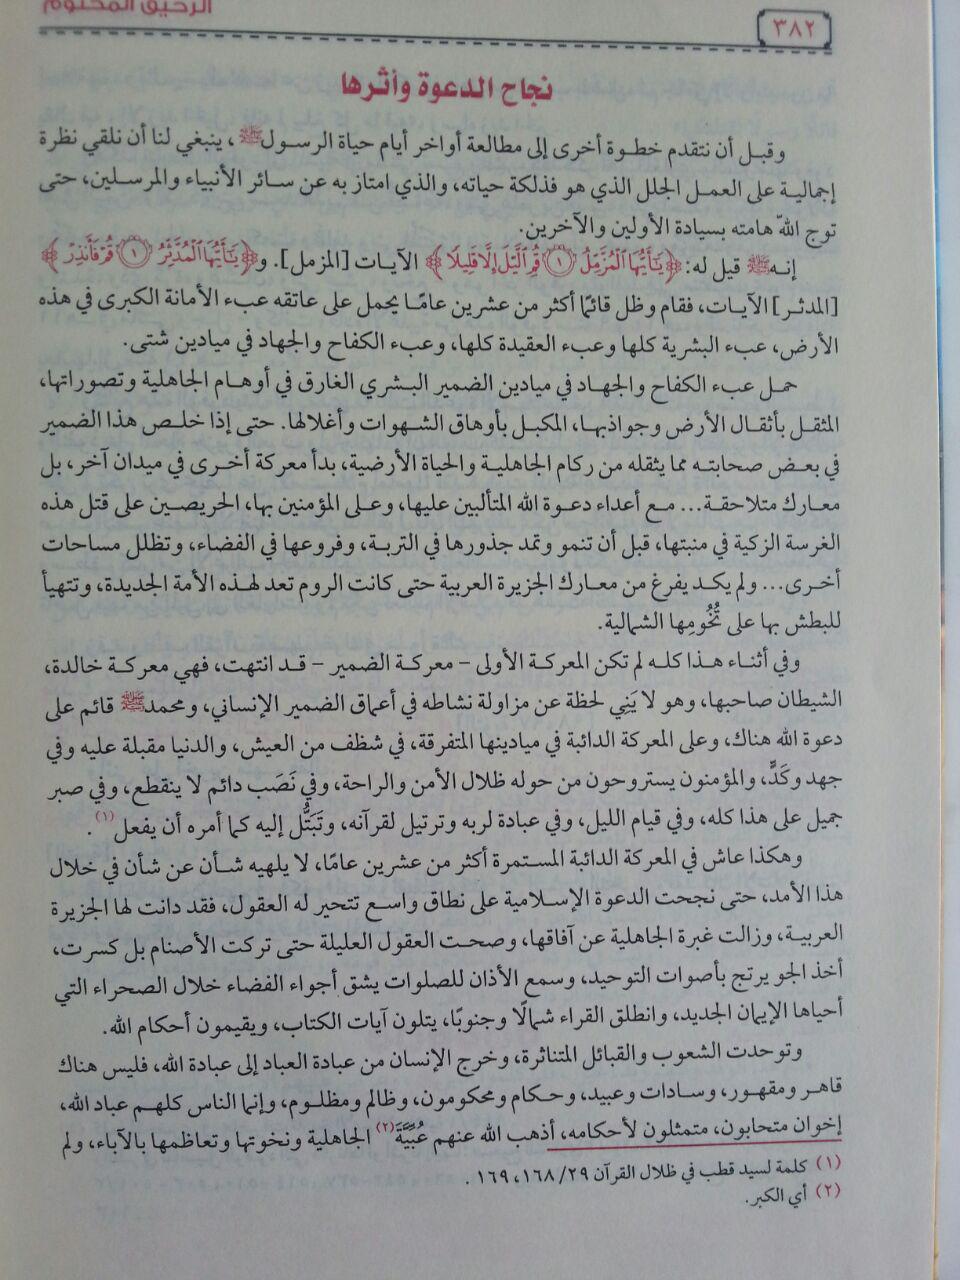 الرحيق المختوم
٣٨٢
نجاح الدعوة وأثرها
وقبل أن نتقدم خطوة أخرى إلى مطالعة أواخر أيام حياة الرسول ﷺ، ينبغي لنا أن نلقي نظرة
إجمالية على العمل الجلل الذي هو فذلكة حياته، والذي امتاز به عن سائر الأنبياء والمرسلين، حتى
توج اللهُ هامته بسيادة الأولين والآخرين.
إنه ﷺ قيل له: ﴿يَٰٓأَيُّهَا ٱلْمُزَّمِّلُ ۝١ قُمِ ٱلَّيْلَ إِلَّا قَلِيلًا﴾ الآيات [المزمل]. و﴿يَٰٓأَيُّهَا ٱلْمُدَّثِّرُ ۝١ قُمْ فَأَنذِرْ﴾
[المدثر] الآيات، فقام وظل قائمًا أكثر من عشرين عامًا يحمل على عاتقه عبء الأمانة الكبرى في هذه
الأرض، عبء البشرية كلها وعبء العقيدة كلها، وعبء الكفاح والجهاد في ميادين شتى.
حمل عبء الكفاح والجهاد في ميادين الضمير البشري الغارق في أوهام الجاهلية وتصوراتها،
المثقل بأثقال الأرض وجواذبها، المكبل بأوهاق الشهوات وأغلالها. حتى إذا خلص هذا الضمير
في بعض صحابته مما يثقله من ركام الجاهلية والحياة الأرضية، بدأ معركة أخرى في ميدان آخر، بل
معارك متلاحقة... مع أعداء دعوة الله المتألبين عليها، وعلى المؤمنين بها، الحريصين على قتل هذه
الغرسة الزكية في منبتها، قبل أن تنمو وتمد جذورها في التربة، وفروعها في الفضاء، وتظلل مساحات
أخرى... ولم يكد يفرغ من معارك الجزيرة العربية حتى كانت الروم تعد لهذه الأمة الجديدة، وتتهيأ
للبطش بها على تُخُومِها الشمالية.
وفي أثناء هذا كله لم تكن المعركة الأولى - معركة الضمير - قد انتهت، فهي معركة خالدة،
الشيطان صاحبها، وهو لا يَنِي لحظة عن مزاولة نشاطه في أعماق الضمير الإنساني، ومحمد ﷺ قائم على
دعوة الله هناك، وعلى المعركة الدائبة في ميادينها المتفرقة، في شظف من العيش، والدنيا مقبلة عليه وفي
جهد وكَدٍّ، والمؤمنون يستروحون من حوله ظلال الأمن والراحة، وفي نَصَب دائم لا ينقطع، وفي صبر
جميل على هذا كله، وفي قيام الليل، وفي عبادة لربه وترتيل لقرآنه، وتَبَتُّل إليه كما أمره أن يفعل(١).
وهكذا عاش في المعركة الدائبة المستمرة أكثر من عشرين عامًا، لا يلهيه شأن عن شأن في خلال
هذا الأمد، حتى نجحت الدعوة الإسلامية على نطاق واسع تتحير له العقول، فقد دانت لها الجزيرة
العربية، وزالت غبرة الجاهلية عن آفاقها، وصحت العقول العليلة حتى تركت الأصنام بل كسرت،
أخذ الجو يرتج بأصوات التوحيد، وسمع الأذان للصلوات يشق أجواء الفضاء خلال الصحراء التي
أحياها الإيمان الجديد، وانطلق القراء شمالًا وجنوبًا، يتلون آيات الكتاب، ويقيمون أحكام الله.
وتوحدت الشعوب والقبائل المتناثرة، وخرج الإنسان من عبادة العباد إلى عبادة الله، فليس هناك
قاهر ومقهور، وسادات وعبيد، وحكام ومحكومون، وظالم ومظلوم، وإنما الناس كلهم عباد الله،
إخوان متحابون، متمثلون لأحكامه، أذهب الله عنهم عُبِّيَّةَ(٢) الجاهلية ونخوتها وتعاظمها بالآباء، ولم
(١) كلمة لسيد قطب في ظلال القرآن ٢٩/ ١٦٨، ١٦٩.
(٢) أي الكبر.